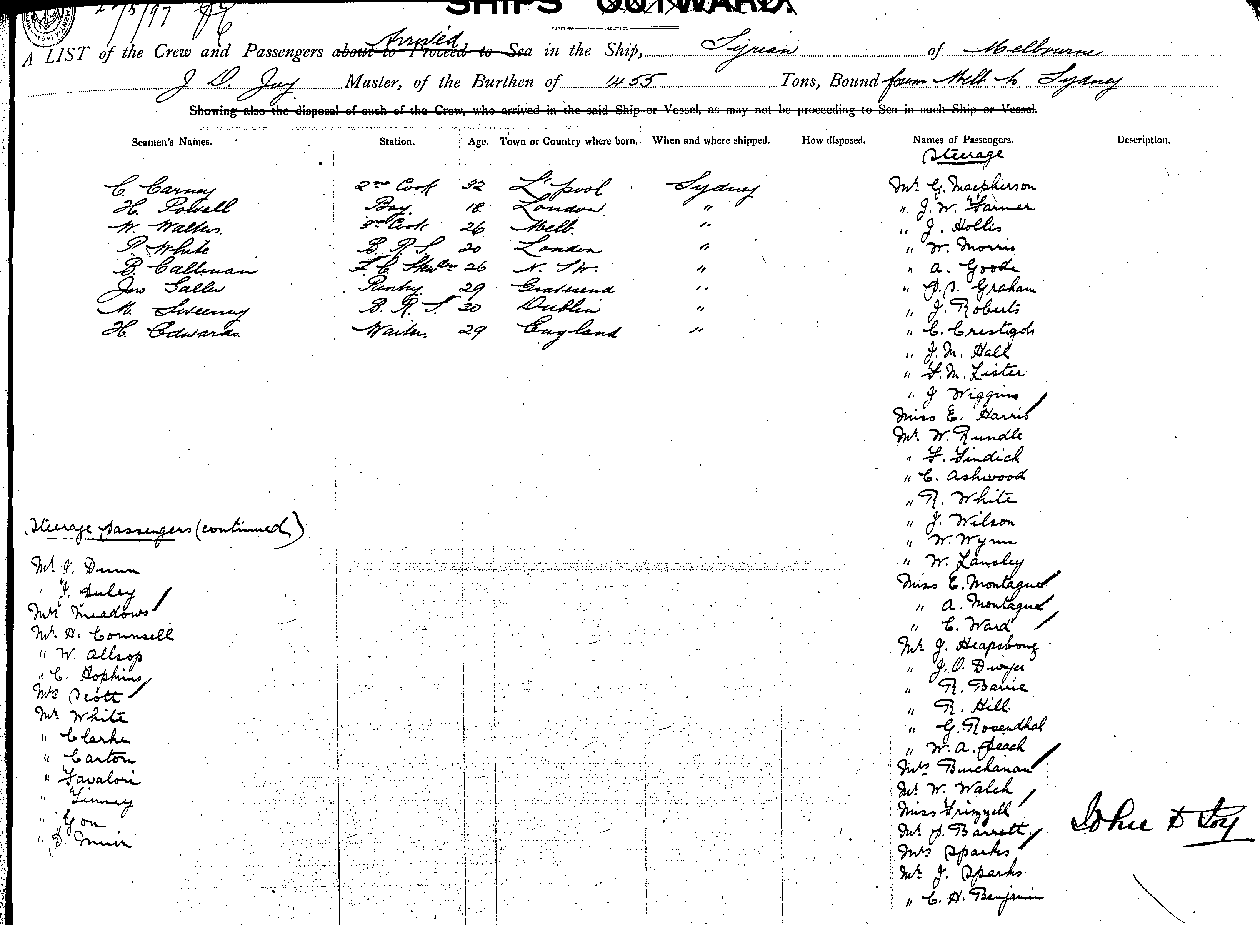 SHIPS' OUTWARD.
27/5/97
A LIST of the Crew and Passengers about to Proceed to Sea Arrived in the Ship, Syrian of Melbourne
J. D. Joy Master, of the Burthen of 1455 Tons, Bound from Melb to Sydney
Showing also the disposal of each of the Crew, who arrived in the said Ship or Vessel, as may not be proceeding to Sea in such Ship or Vessel.
Seamen's Names. Station. Age. Town or Country where born. When and where shipped. How disposed. Names of Passengers. Description.
Steerage
C Carney 2nd Cook 32 L'pool Sydney Mr G. Macpherson
H. Powell Boy 18 London " " J. W. Farmer
W. Walters 3rd Cook 26 Melb. " " J. Hollis
P. White B. R. S. 20 London " " W. Morris
B. Callinan 26 N. S. W. " " A. Goode
Jno Pantry 29 Gravesend " " Graham
M. Sweeney B. R. S. 30 Dublin " " J. Roberts
H. Edwards Waiter 29 England " " C.
" J. M. Hall
" F. M. Lister
" J Wiggins
Miss E. Harris
Mr W. Rundle
" F. Findich
" C. Ashwood
" R. White
" J. Wilson
" W. Wynn
" W. Lansley
Miss E. Montague
" A. Montague
" C. Ward
Mr J.
" J. O. Dwyer
" R. Barrie
" R. Hill
" G. Rosenthal
" W. A. Peach
Mrs Buchanan
Mr W. Walsh
Miss Frizzell
Mr J. Barrett
Mrs Sparks
Mr J. Sparks
" C. H. Benjamin
Steerage passengers (continued)
Mr J. Dunn
" F.
Mrs Meadows
Mr H. Counsell
" W. Allsop
" C. Hopkins
Mrs Scott
Mr White
" Clarke
" Carton
" Favalori
" Finney
" Gon
" D. Muir
John D Joy